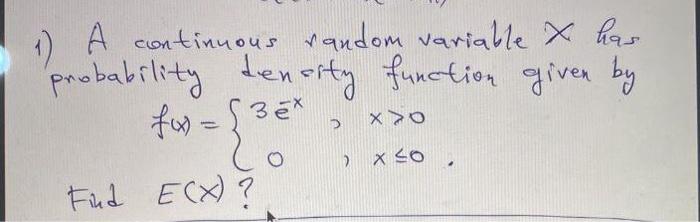 1) A continuous random variable X has
probability density function given by
f(x) = { 3e^-x , x>0
0 , x≤0 .
Find E(X) ?